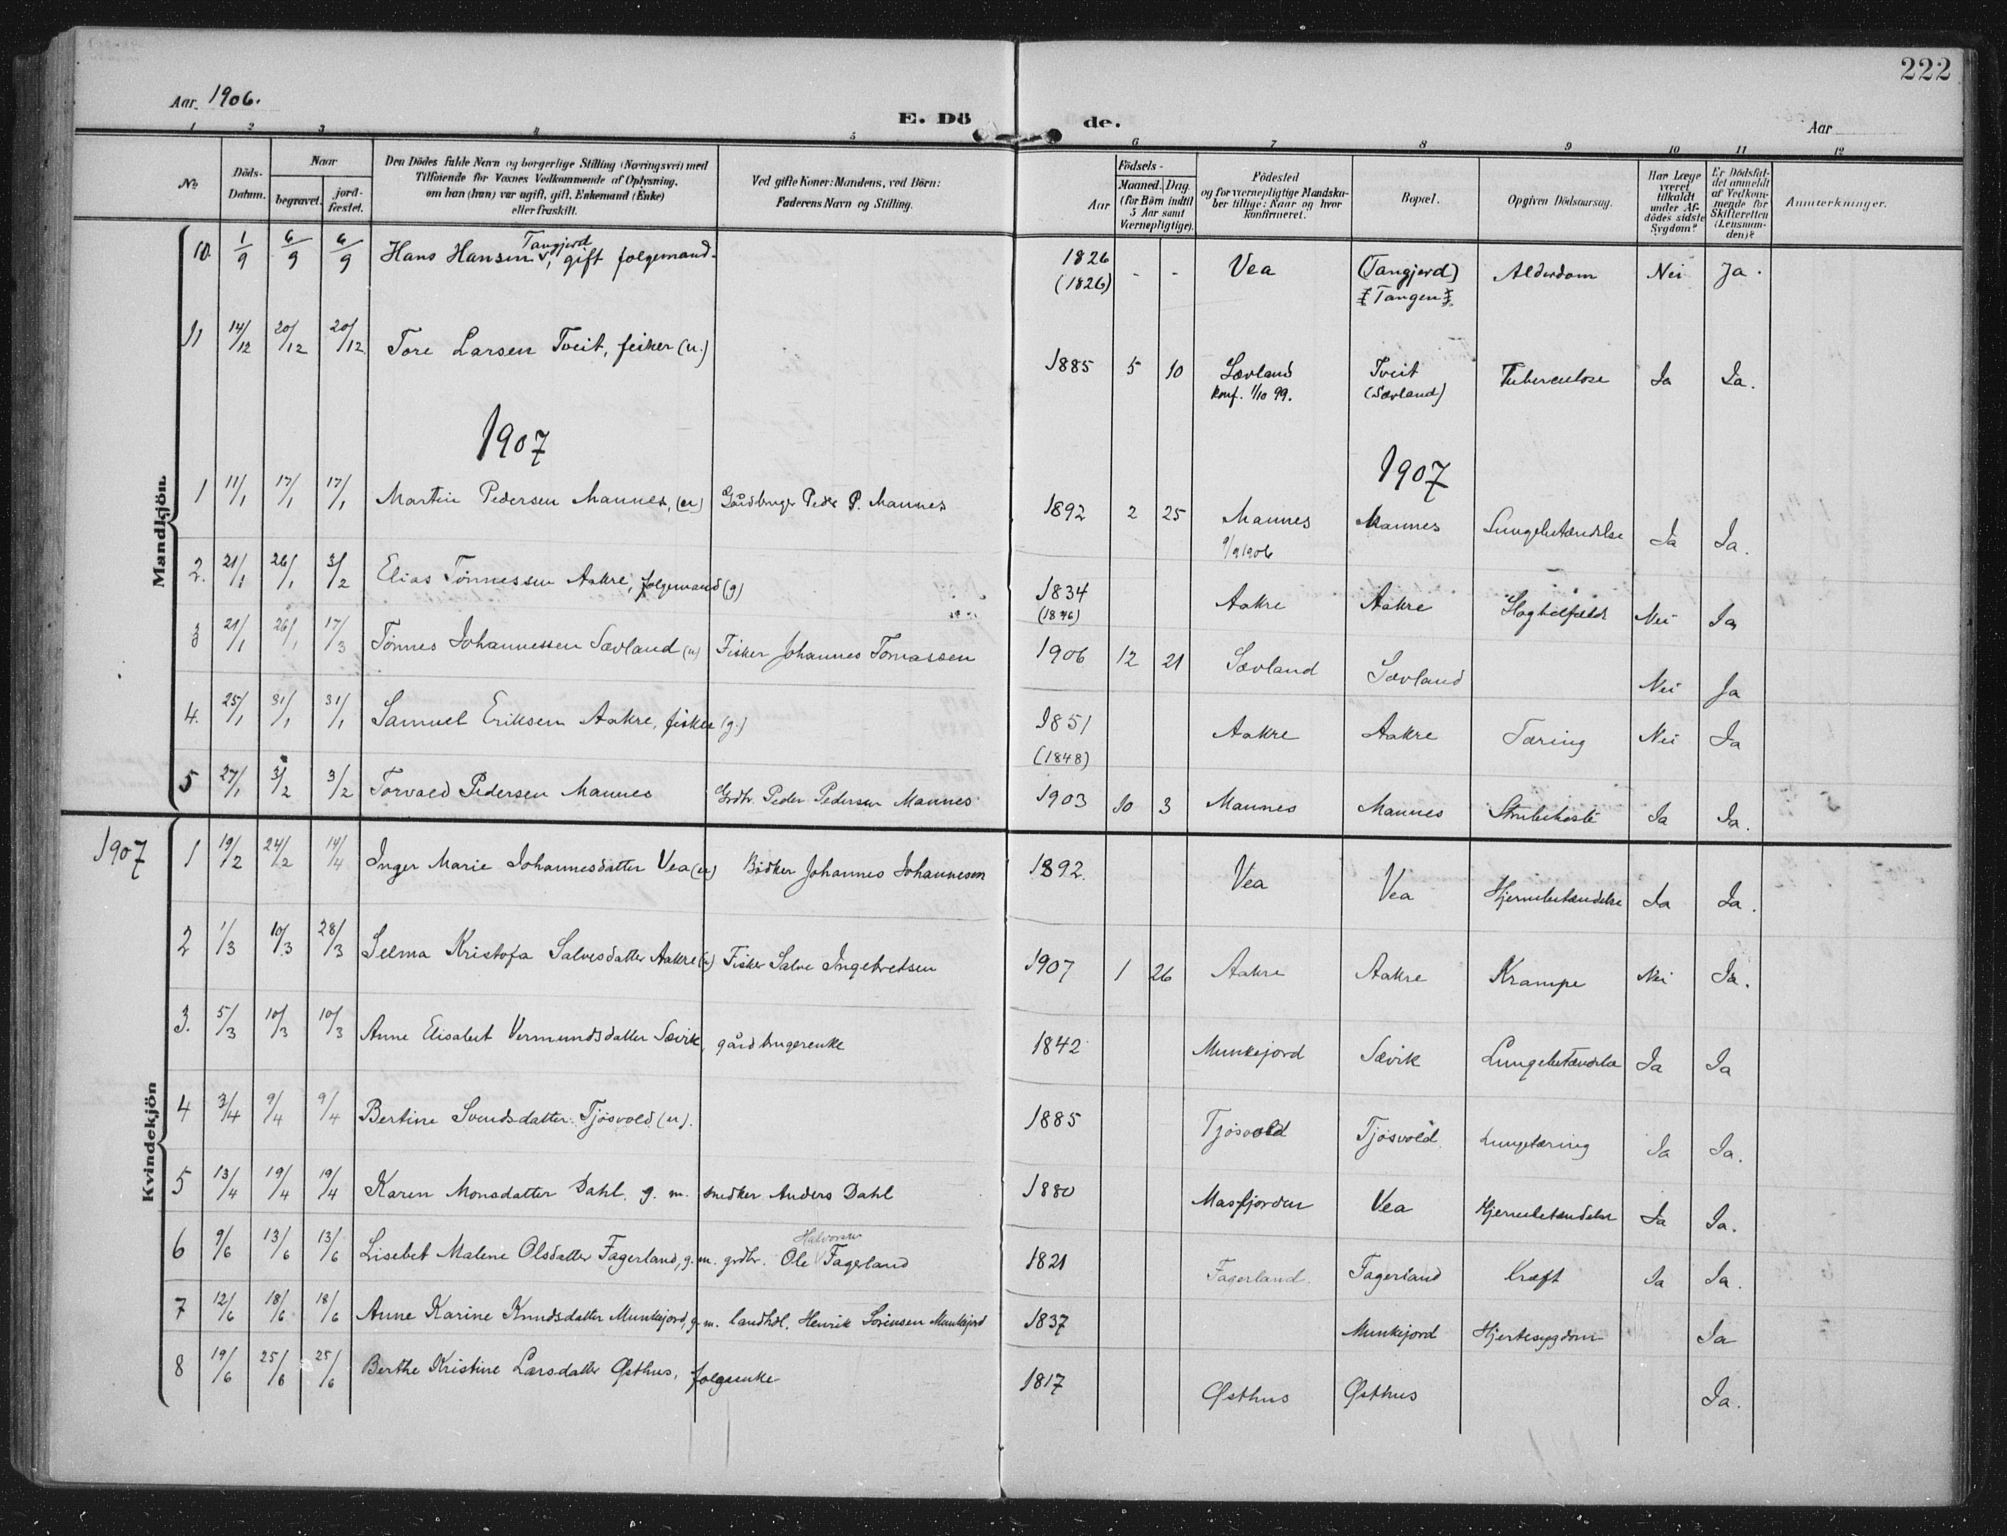 222
Aar 1906.
E. Dö de.
Aar
1 2 3 4 5 6 7 8 9 10 11 12
No Döds-Datum. Naar begravet. jord-fæstet. Den Dödes fulde Navn og borgerlige Stilling (Næringsvei) med Tilföiende for Voxnes Vedkommende af Oplysning, om han (hun) var ugift, gift, Enkemand (Enke) eller fraskilt. Ved gifte Koner: Mandens, ved Börn: Faderens Navn og Stilling. Födsels- Aar Maaned. Dag. (for Börn indtil 5 Aar samt Værnepligtige). Födested og for værnepligtige Mandskaber tillige: Naar og hvor konfirmeret. Bopæl. Opgiven Dödsaarsag. Har Læge været tilkaldt under Afdödes sidste Sygdom? Er Dödsfaldet anmeldt af Vedkommende for Skifteretten (Lensmanden)? Anmærkninger.
Mandkjön.
10. 1/9 6/9 6/9 Hans Hansen Tangjerd, gift folgemand. 1826 (1826) - - Vea (Tangjerd) Tangen Alderdom Nei Ja.
11 14/12 20/12 20/12 Tore Larsen Tveit, fisker (u.) 1885 5 10 Sævland Tveit Tuberculose Ja Ja.
konf. 1/10 99. (Sævland)
1907 1907
1 11/1 17/1 17/1 Martin Pedersen Mannes, (u) Gårdbruger Peder P. Mannes 1892 2 25 Mannes Mannes Lungebetændelse Ja Ja.
9/9 1906
2. 21/1 26/1 3/2 Elias Tönnessen Aakre, folgemand (g) 1834 Aakre Aakre Nei Ja
3 21/1 26/1 17/3 Tönnes Johannessen Sævland (u) Fisker Johannes Tomassen 1906 12 21 Sævland Sævland Nei Ja
4. 25/1 31/1 31/1 Samuel Eriksen Aakre, fisker (g.) 1851 (1848) Aakre Aakre Tæring Nei Ja
5 27/1 3/2 3/2 Torvald Pedersen Mannes Grdbr. Peder Pedersen Mannes 1903 10 3 Mannes Mannes Strubehoste Ja Ja.
1907
Kvindekjön
1 19/2 24/2 14/4 Inger Marie Johannesdatter Vea (u) Bödker Johannes Johannesen 1892. Vea Vea Hjernebetændelse Ja Ja.
2 1/3 10/3 28/3 Selma Kristofa Salvesdatter Aakre (u) Fisker Salve Ingebretsen 1907 1 26 Aakre Aakre Krampe Nei Ja.
3. 5/3 10/3 10/3 Anne Elisabet Vermundsdatter Sævik, gårdbrugerenke 1842 Munkejord Sævik Lungebetændelse Ja Ja
4 3/4 9/4 9/4 Bertine Svendsdatter Tjösvold (u). 1885 Tjösvold Tjösvold Lungetæring Ja Ja.
5 13/4 19/4 19/4 Karen Monsdatter Dahl. g. m. snedker Anders Dahl 1880 Masfjorden Vea Hjernebetændelse Ja Ja.
6 9/6 13/6 13/6 Lisebet Malene Olsdatter Fagerland, g. m. grdbr. Ole Halvorsen Fagerland 1821 Fagerland Fagerland Kræft Ja Ja.
7 12/6 18/6 18/6 Anne Karine Knudsdatter Munkejord, g. m. landhdl. Henrik Sörensen Munkejord 1837 Munkejord Hjertesygdom Ja
8 19/6 25/6 25/6 Berthe Kristine Larsdatter Østhus, folgeenke 1817 Østhus Østhus Ja.